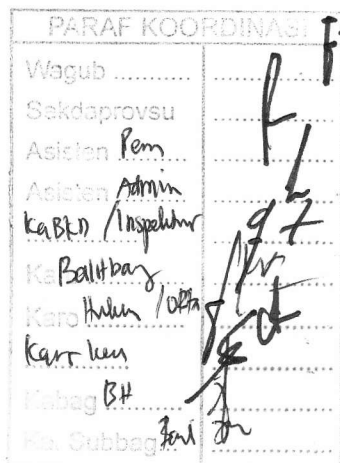 PARAF KOORDINASI
Wagub ..........
Sekdaprovsu
Asisten Pem
Asisten Admin
KaBKD / Inspektur
Ka Balitbang
Karo Hukum / Orta
Karo keu
Kabag BH
Ka. Subbag